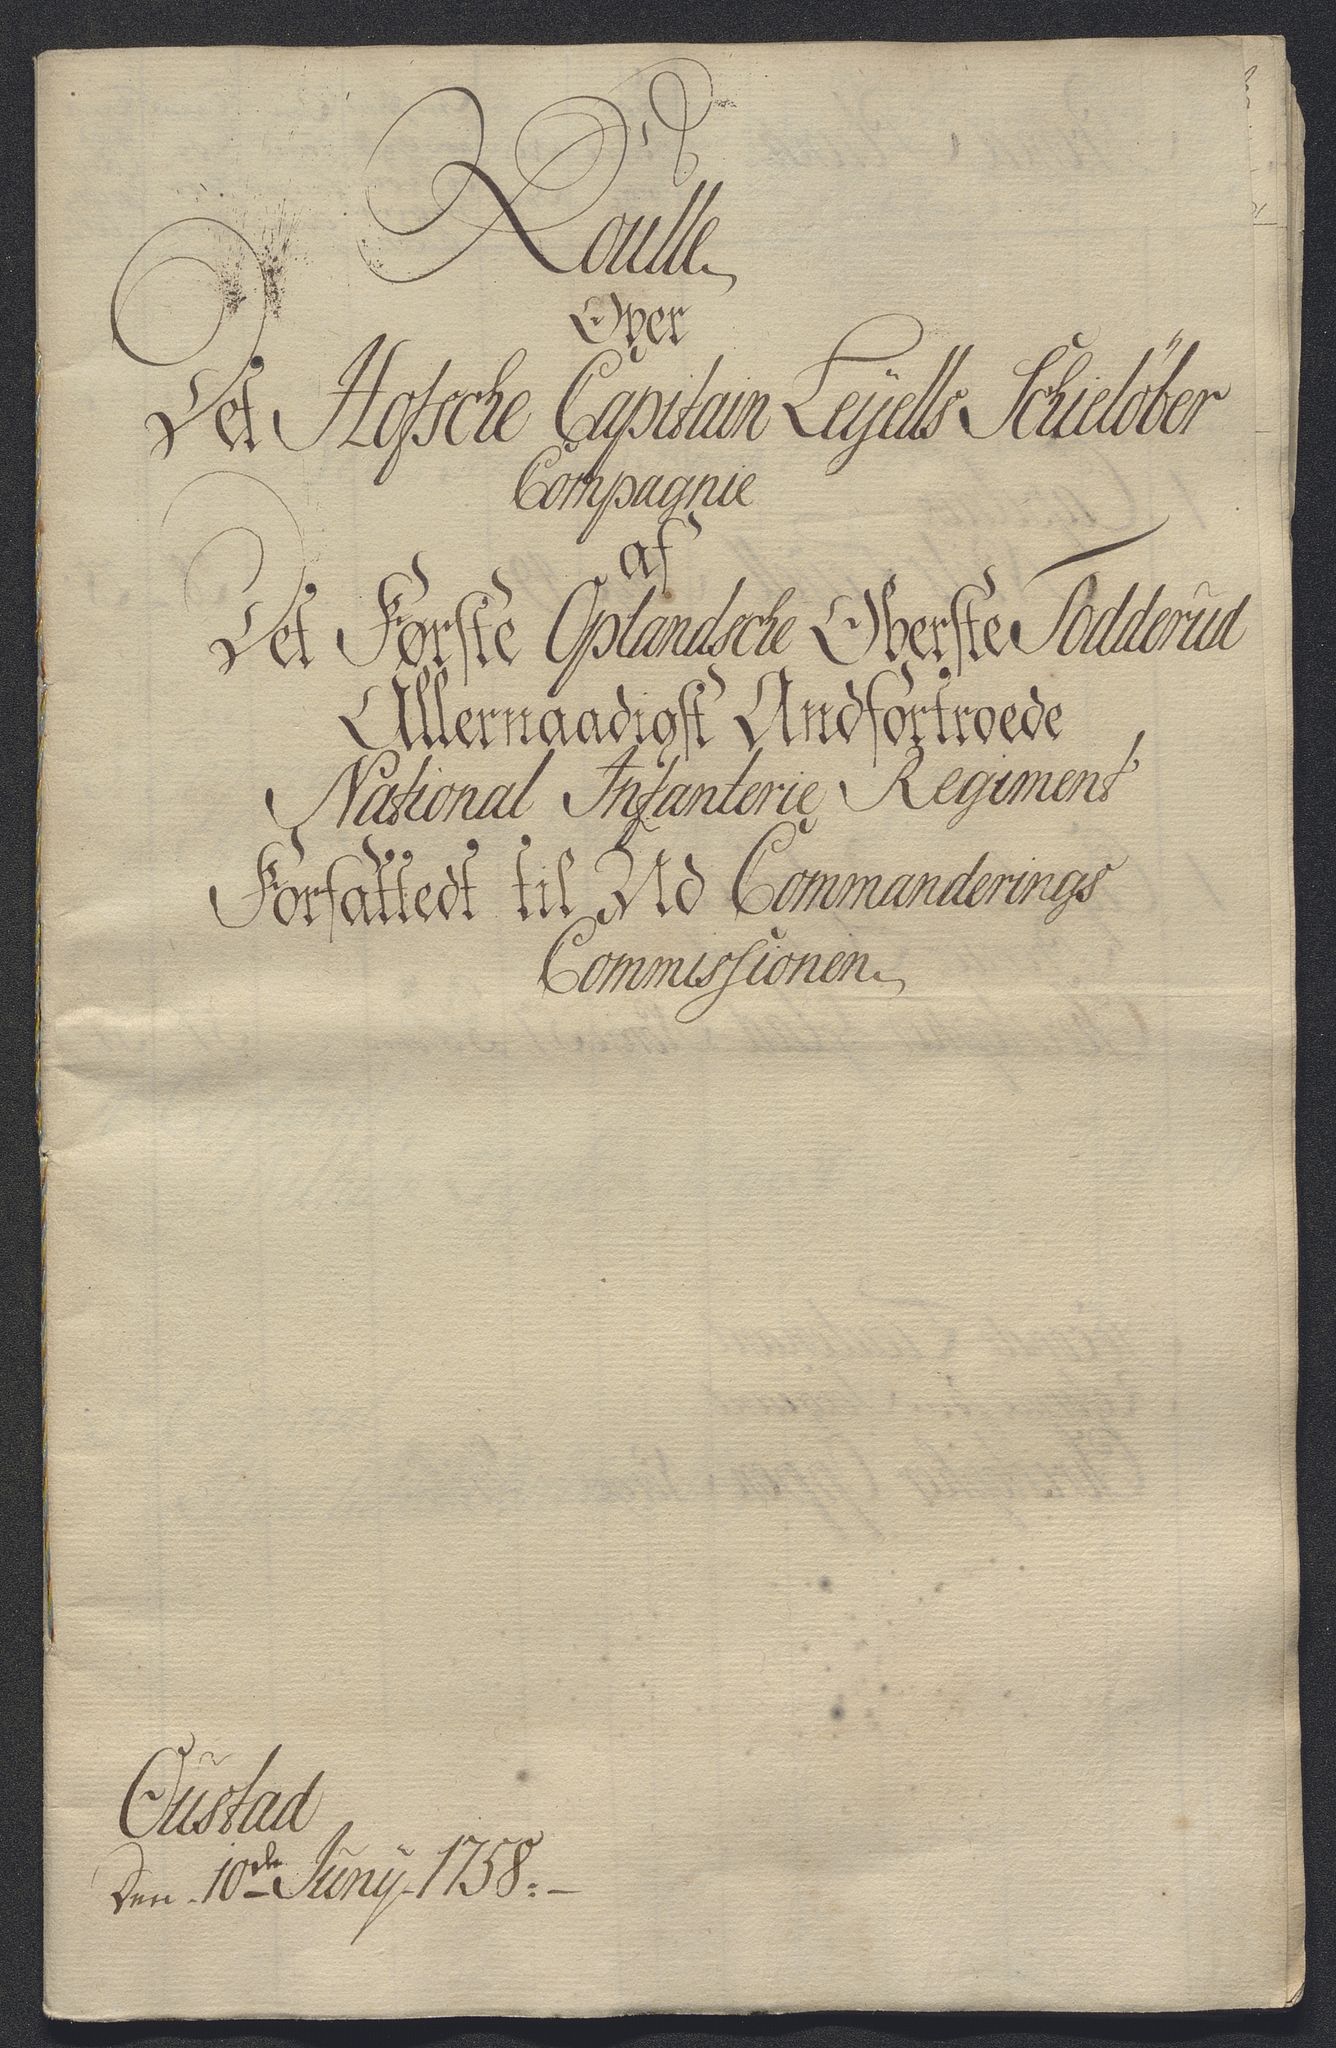 Roulle
Over
Det Hofsche Capitain Leijells Schielöber
Compagnie
af
Det Første Oplandsche Oberste Todderud
Allernaadigst Andfortroede
National Infanterie Regiment
Forfattedt til Ud Commanderings
Commissionen
Oustad
Den 10de Junÿ 1758.